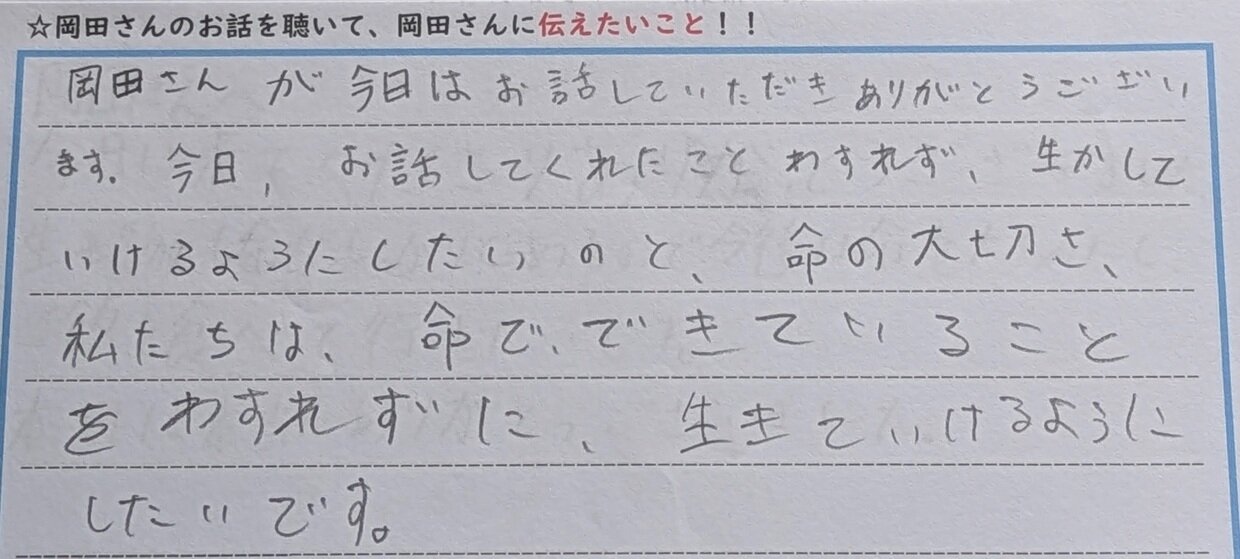 ☆岡田さんのお話を聴いて、岡田さんに伝えたいこと！！
岡田さんが今日はお話していただきありがとうござい
ます。今日、お話してくれたことわすれず、生かして
いけるようにしたいのと、命の大切さ、
私たちは、命で、できていること
をわすれずに、生きていけるように
したいです。